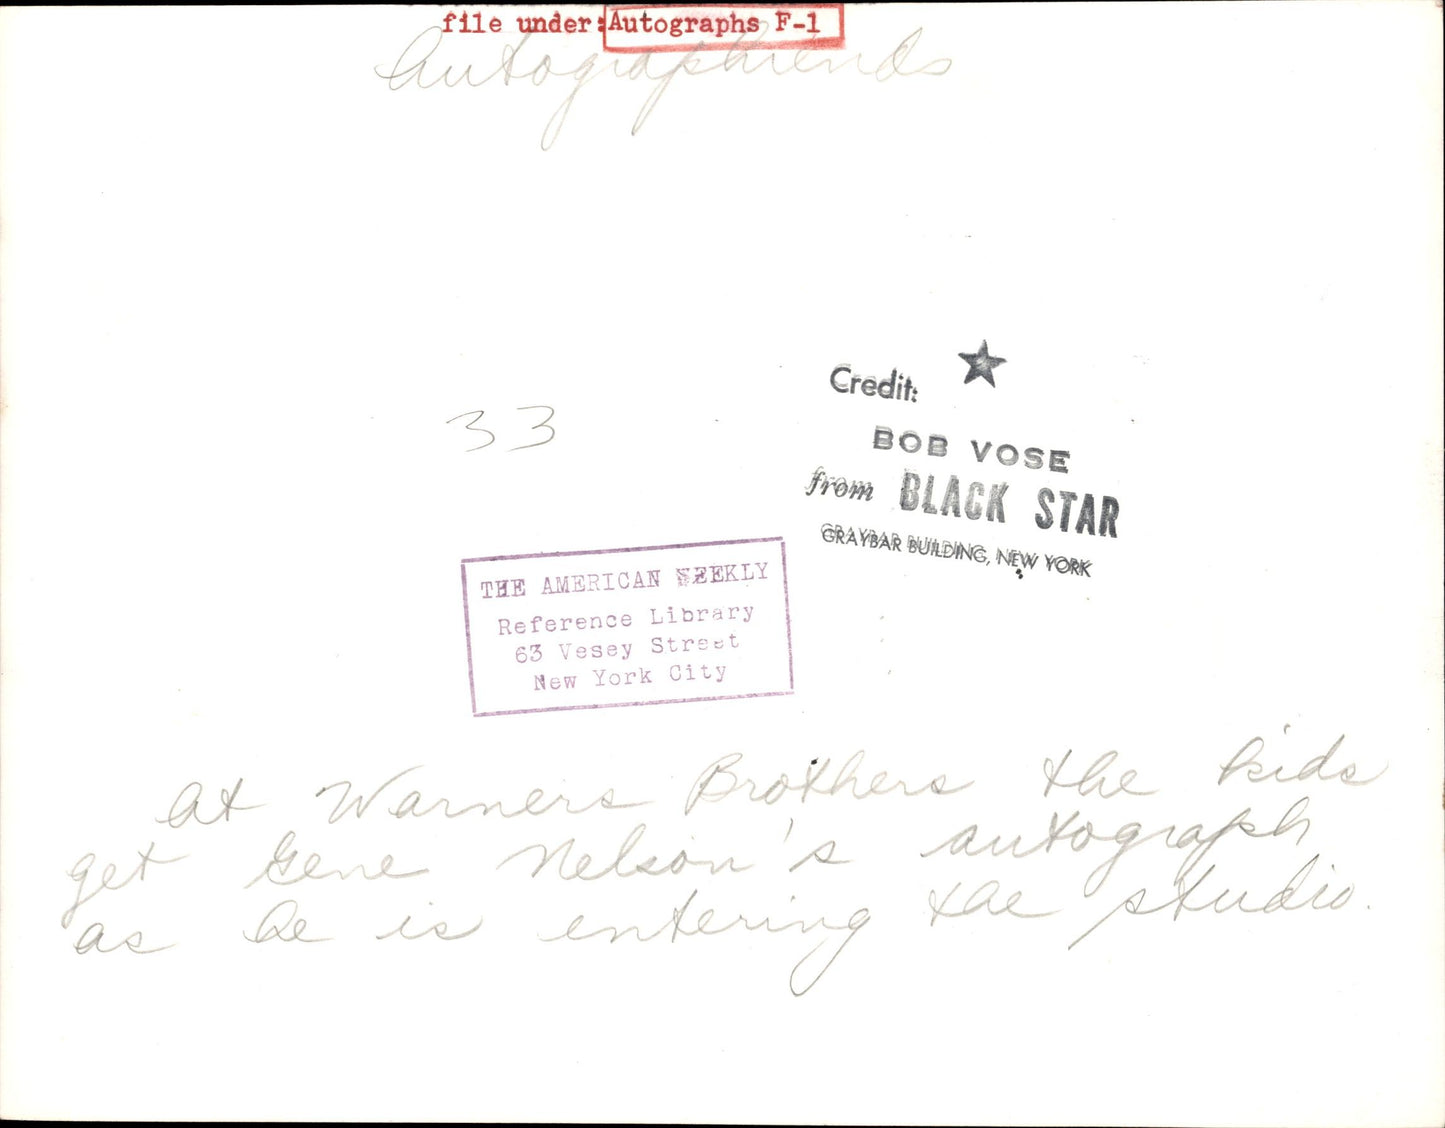 file under: Autographs F-1
Autographiends
33
Credit:
BOB VOSE
from BLACK STAR
GRAYBAR BUILDING, NEW YORK
THE AMERICAN WEEKLY
Reference Library
63 Vesey Street
New York City
At Warners Brothers the kids
get Gene Nelson's autograph
as he is entering the studio.